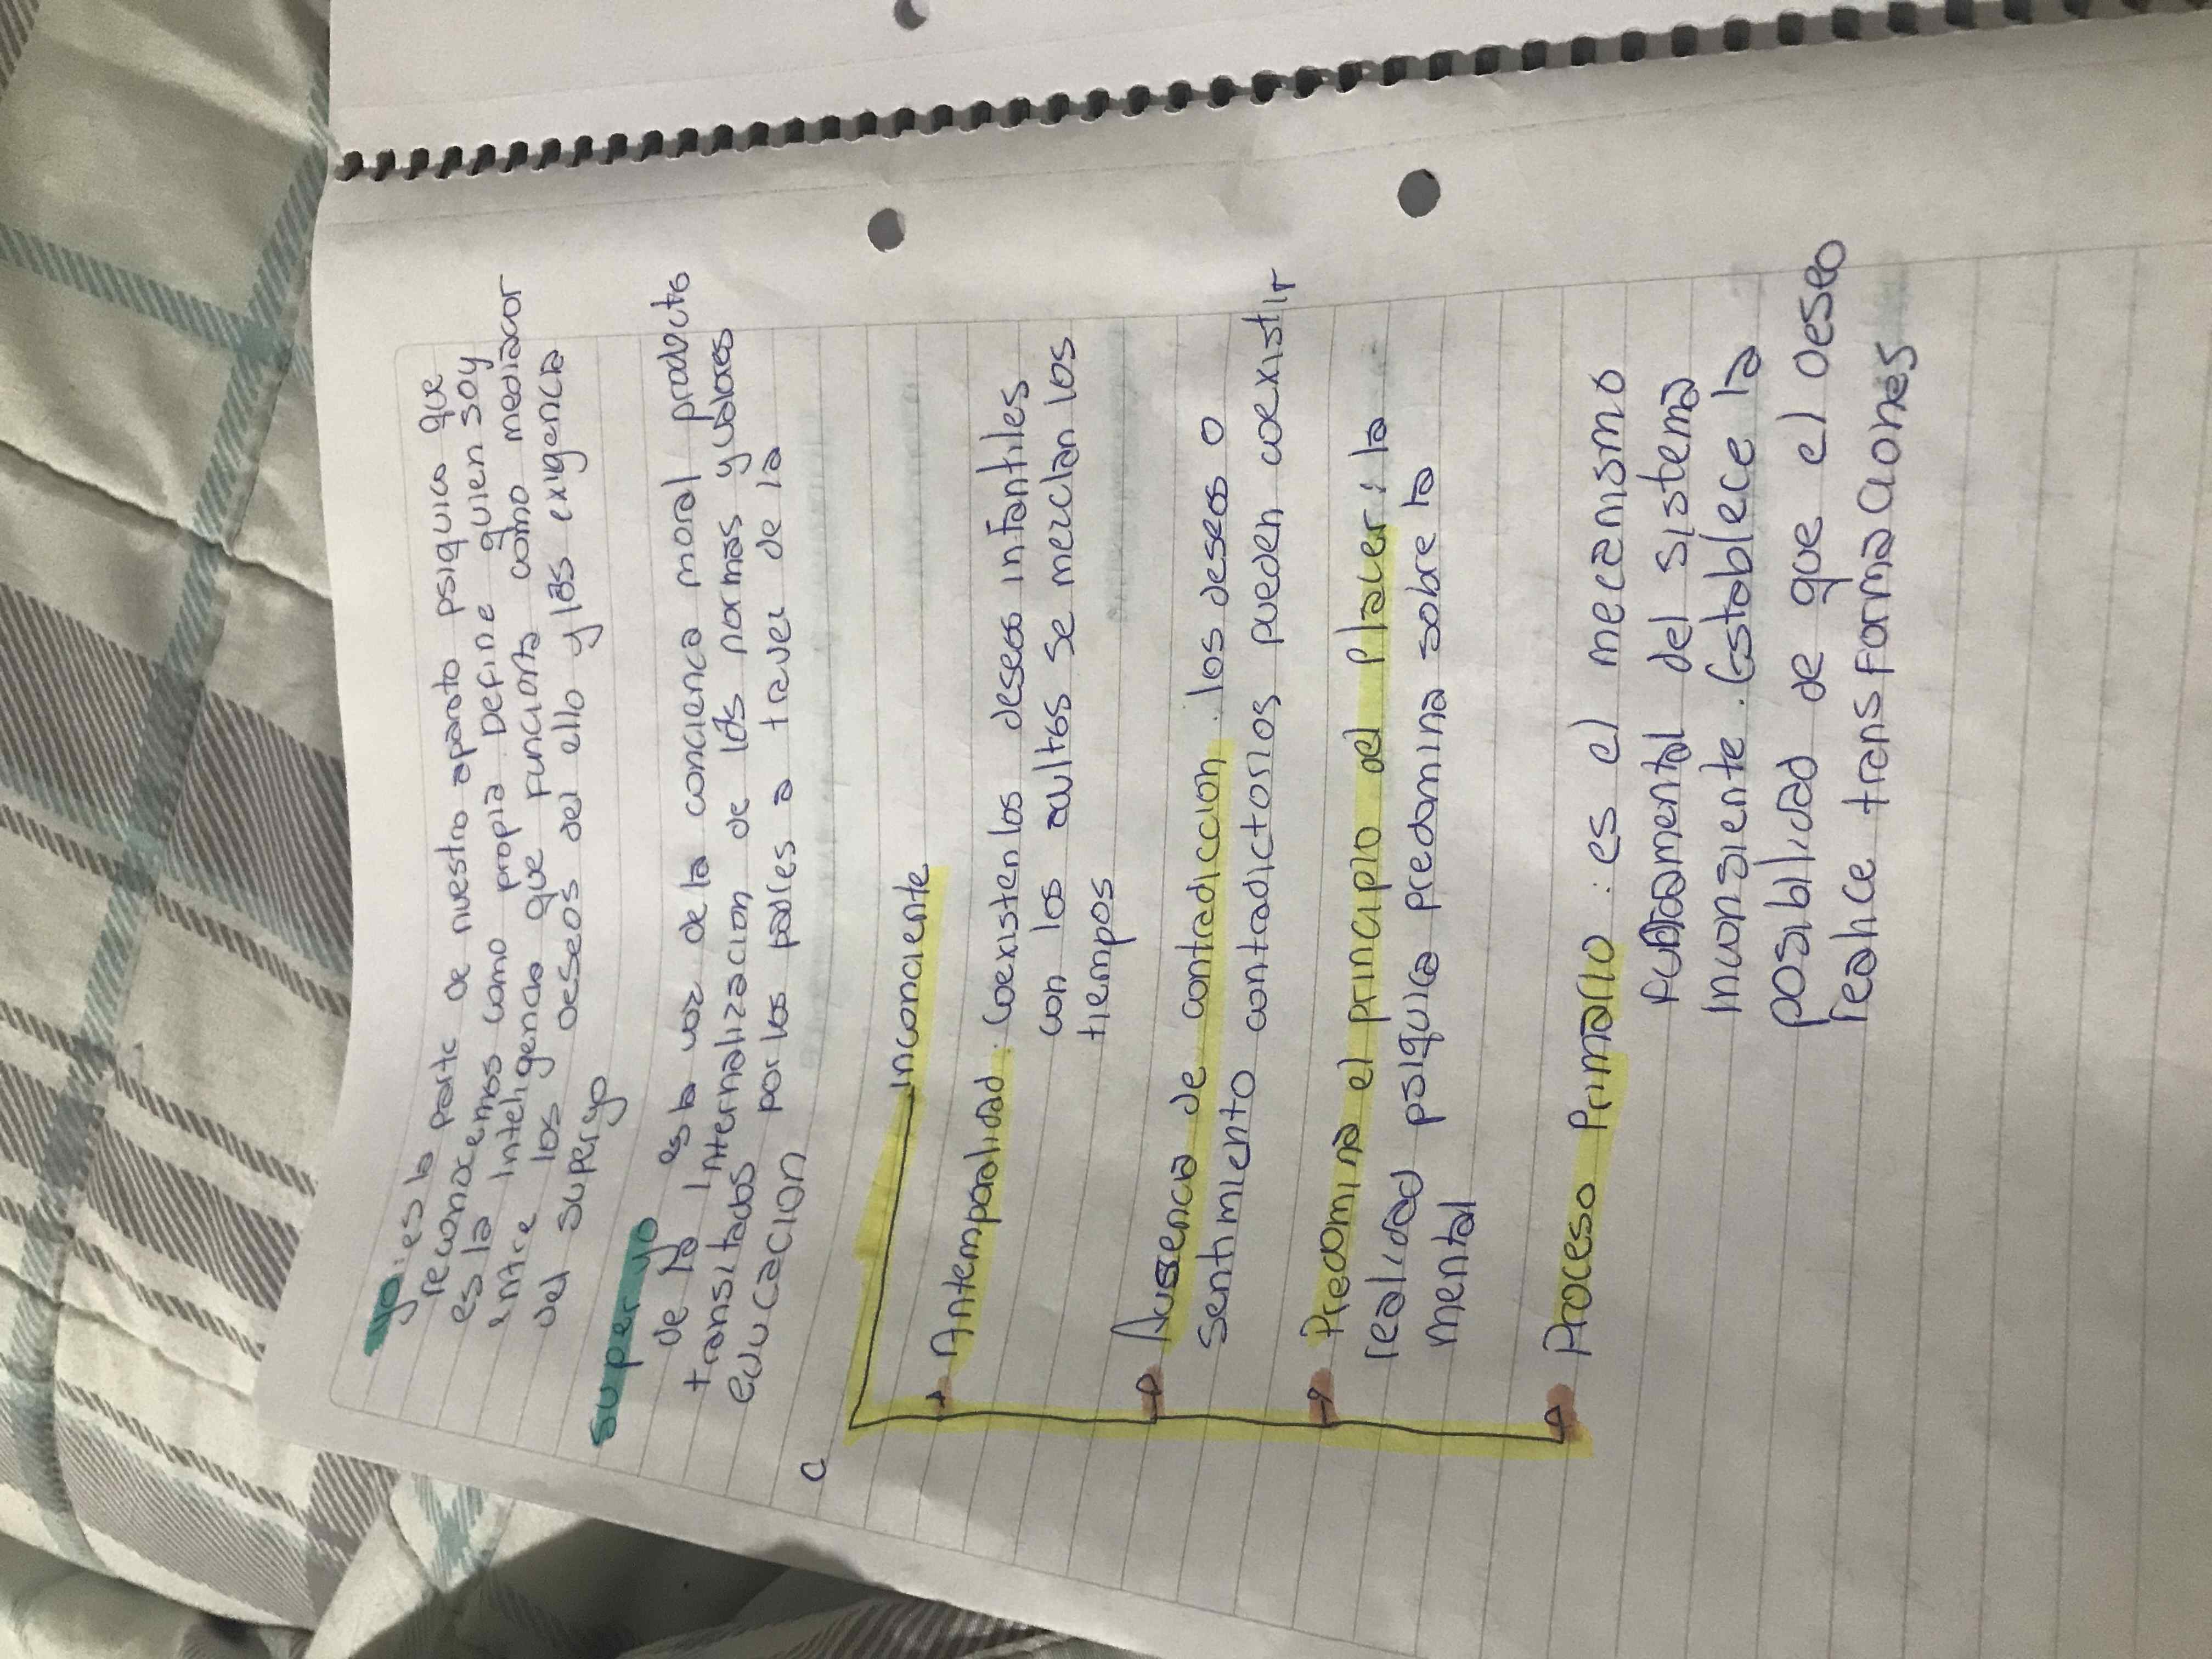 yo: es la parte de nuestro aparato psiquico que
reconocemos como propia define quien soy
es la inteligencia que funciona como mediador
entre los deseos del ello y las exigencia
del super yo
super yo es la voz de la conciencia moral producto
de la internalizacion de las normas y valores
transitados por los padres a travez de la
educacion
c
inconciente
Antemporalidad: coexisten los deseos infantiles
con los adultos se mezclan los
tiempos
Ausencia de contradiccion: los deseos o
sentimiento contradictorios pueden coexistir
Predomina el principio del placer: la
realidad psiquica predomina sobre la
mental
Proceso Primario: es el mecanismo
fundamental del sistema
inconsiente. Establece la
posibilidad de que el deseo
realice transformaciones